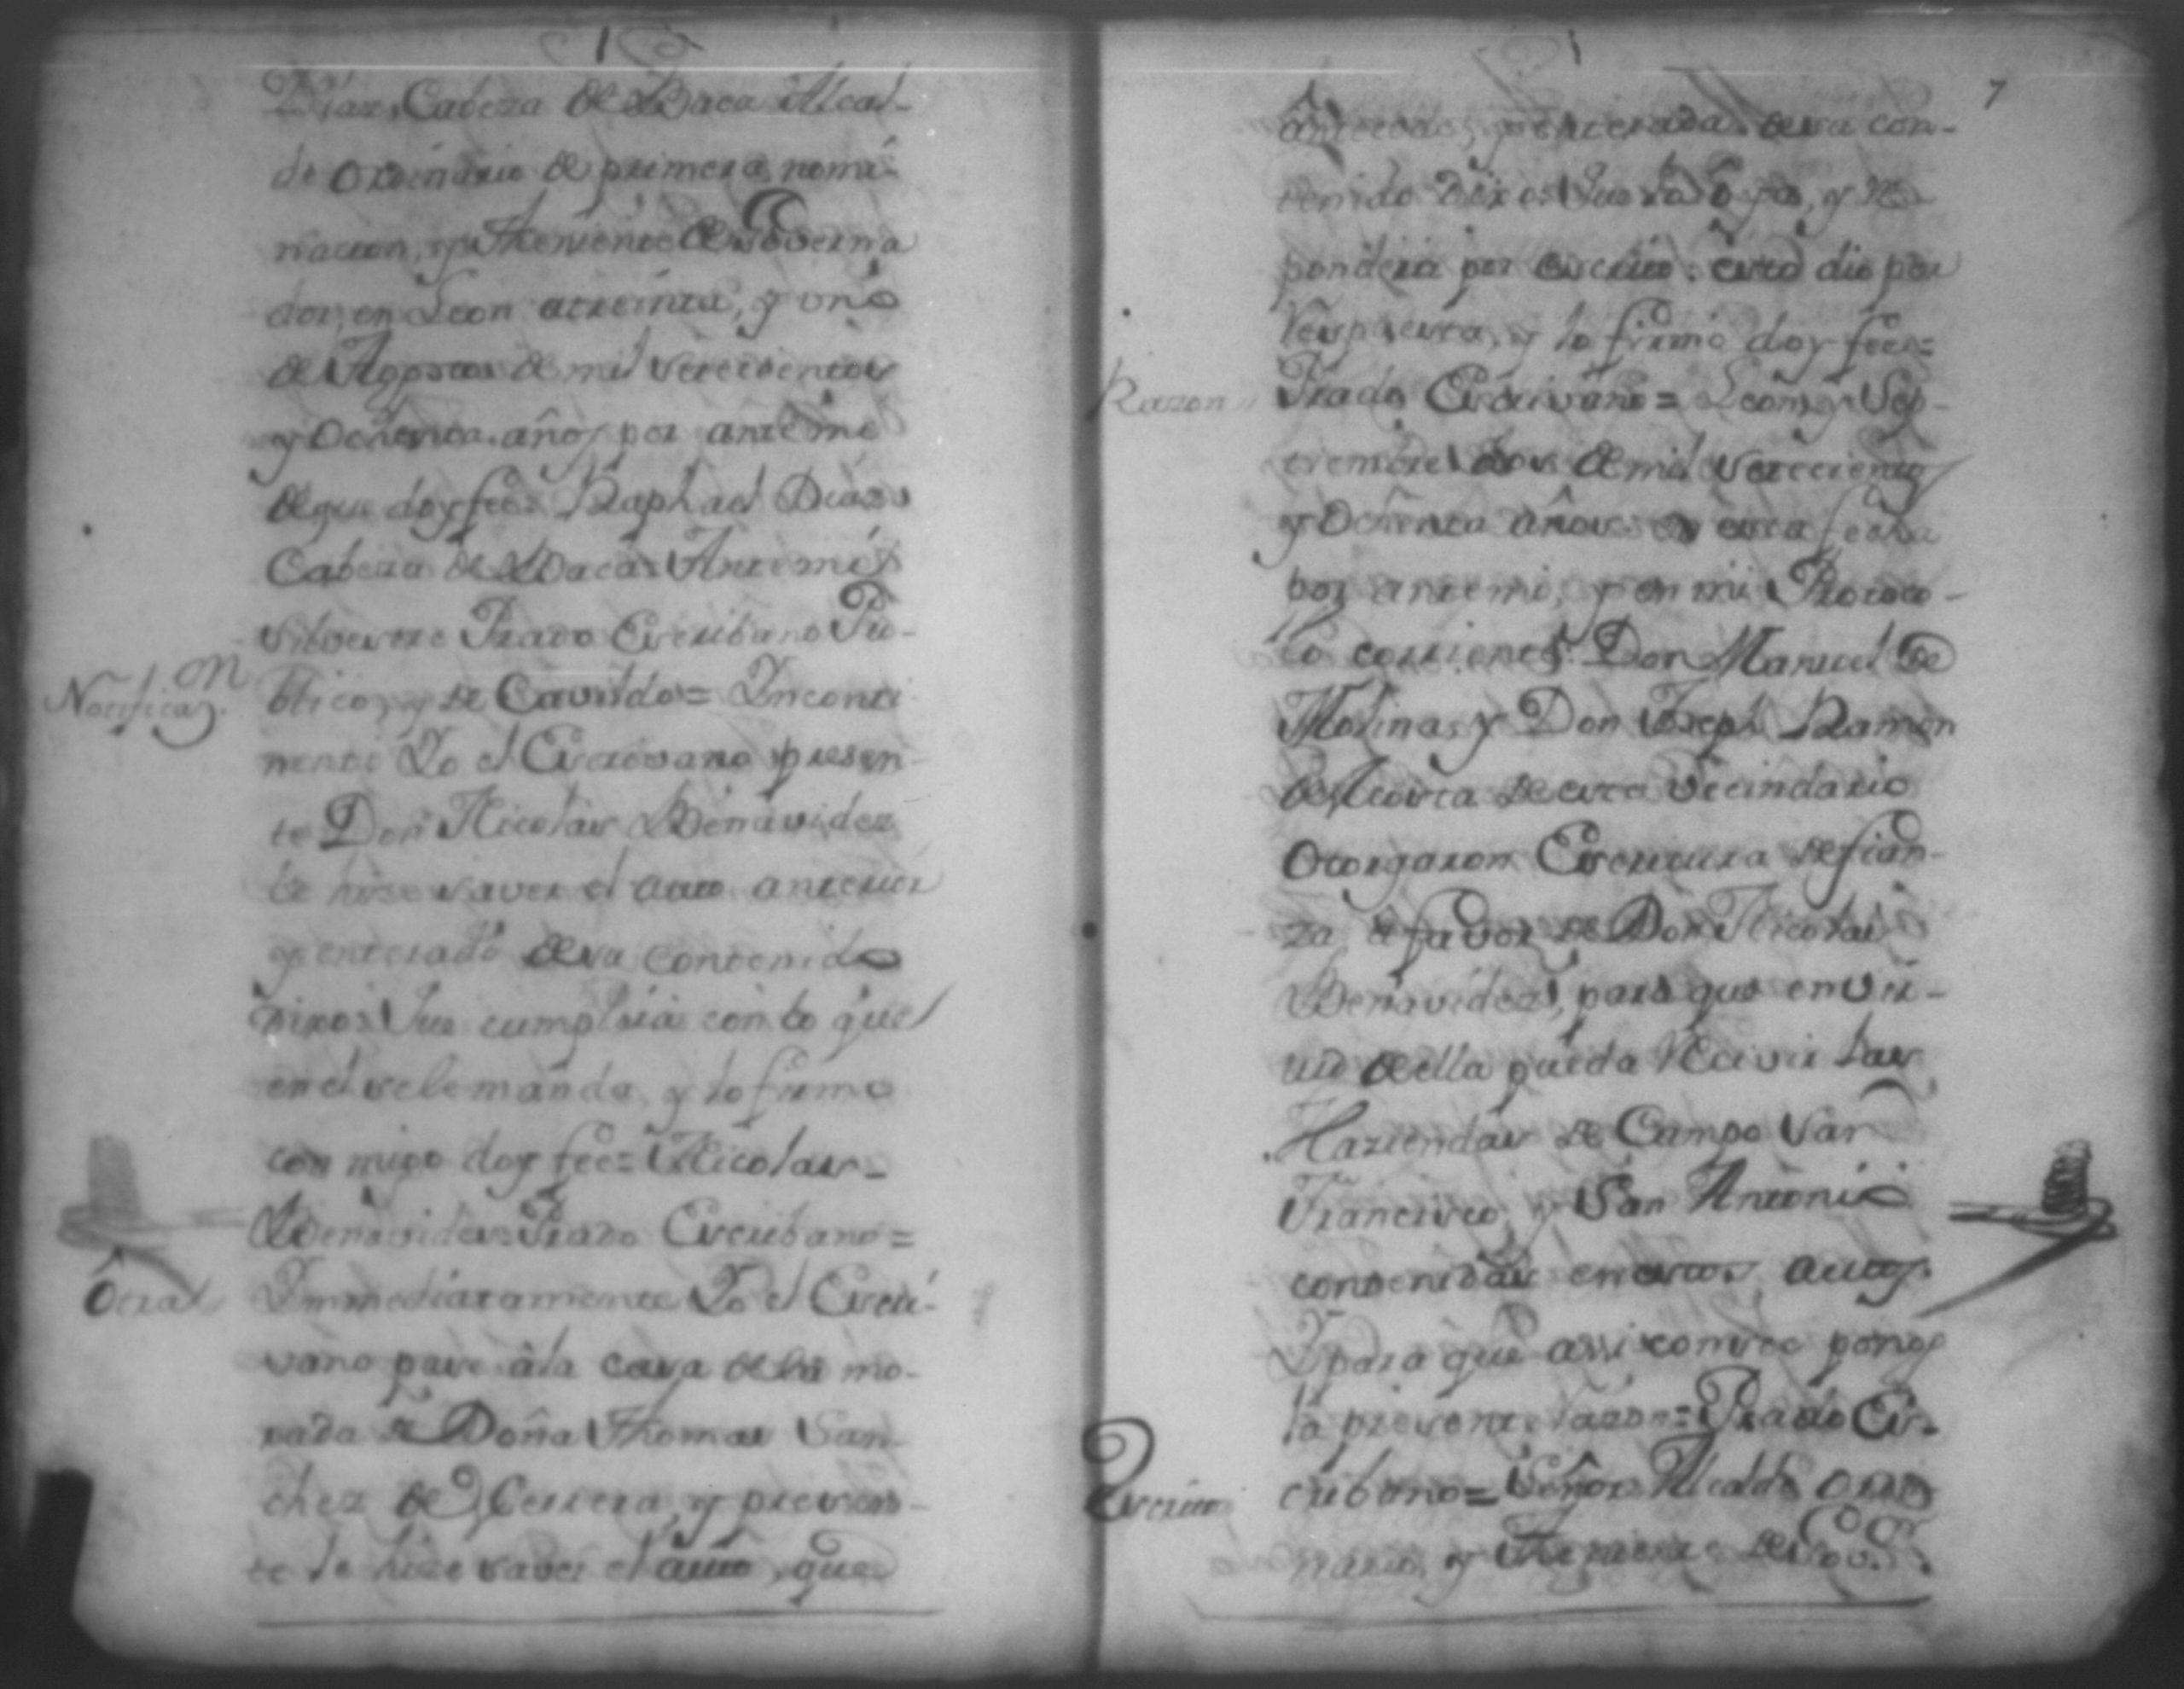 Diaz Cabeza de Baca Alcal-
de Ordinario de primera nomi-
nacion, y Theniente de Governa
dor, en Leon atreinta, y uno
de Agosto de mil setecientos
y Ochenta años por ante mi
de que doy fee= Raphael Diaz
Cabeza de Baca= Antemi
Silvestre Prado Escribano Pu-
Notificaz.on
blico, y de Cavildo= Inconti
nenti Yo el Escrivano presen-
te Don Nicolas Benavidez
le hize saver el auto anterior
y enterado de su contenido
Dixo: Que cumplira con lo que
en el se le manda, y lo firmo
con migo doy fee= Nicolas
Benavides= Prado Escribano=
Otra
Immediatamente Yo el Escri-
vano pase â la casa de la mo-
rada de Doña Thomasa San-
chez de Herrera, y presen-
te le hize saver el auto, que
7
antecede, y enterada de su con-
tenido Dixo: Que lo oye, y Res
pondera por escrito: esto dio por
Respuesta, y lo firmó doy fee=
Razon
Prado Escrivano= Leon y Sep-
tiembre dos de mil setecientos
y Ochenta años en esta fecha
por antemi, y en mi Protoco-
lo corriente Don Manuel de
Molina, y Don Joseph Ramon
de este Vecindario
Otorgaron Escritura de fian-
za à favor de Don Nicolas
Benavidez, para que en vir-
tud de ella pueda Recivir las
Haziendas de Campo San
Francisco, y San Antonio
contenidas en estos autos.
Y para que assi conste pongo
la presente razon= Prado Es-
Escrito
cribano= Señor Alcalde Ordi
nario, y Theniente de Gov.or